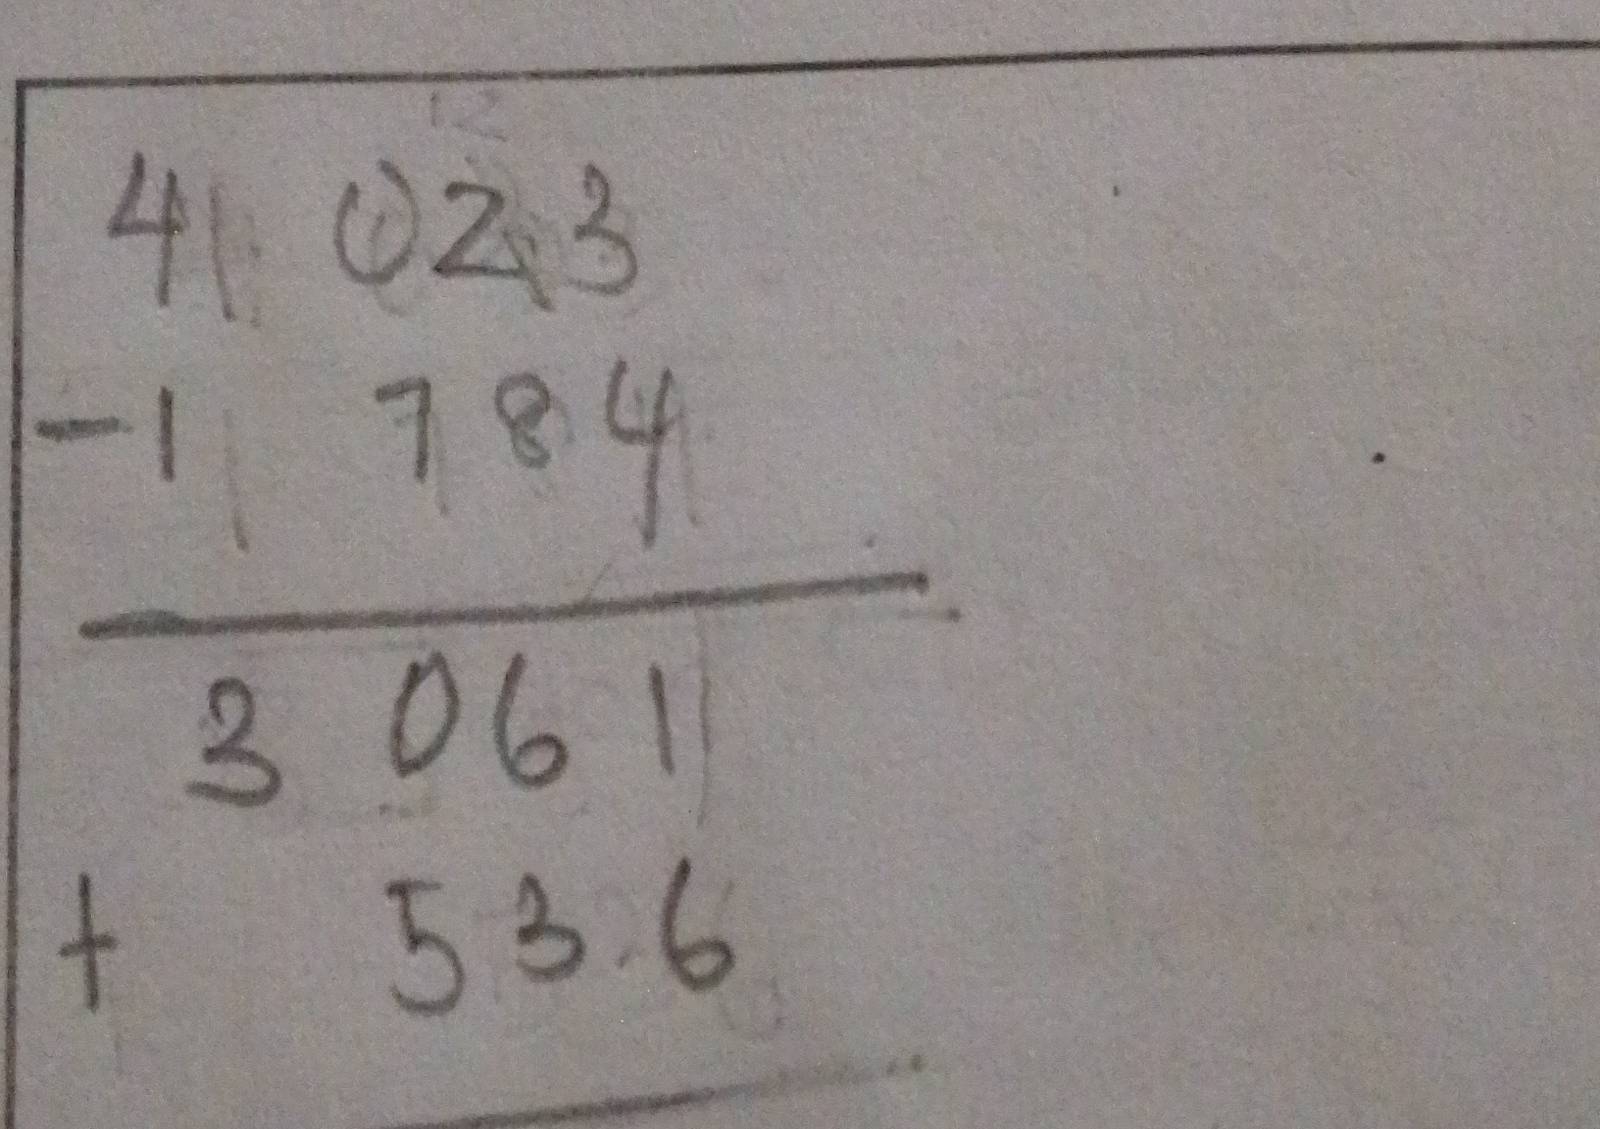 12
4 023
-1 784
3 061
+ 536